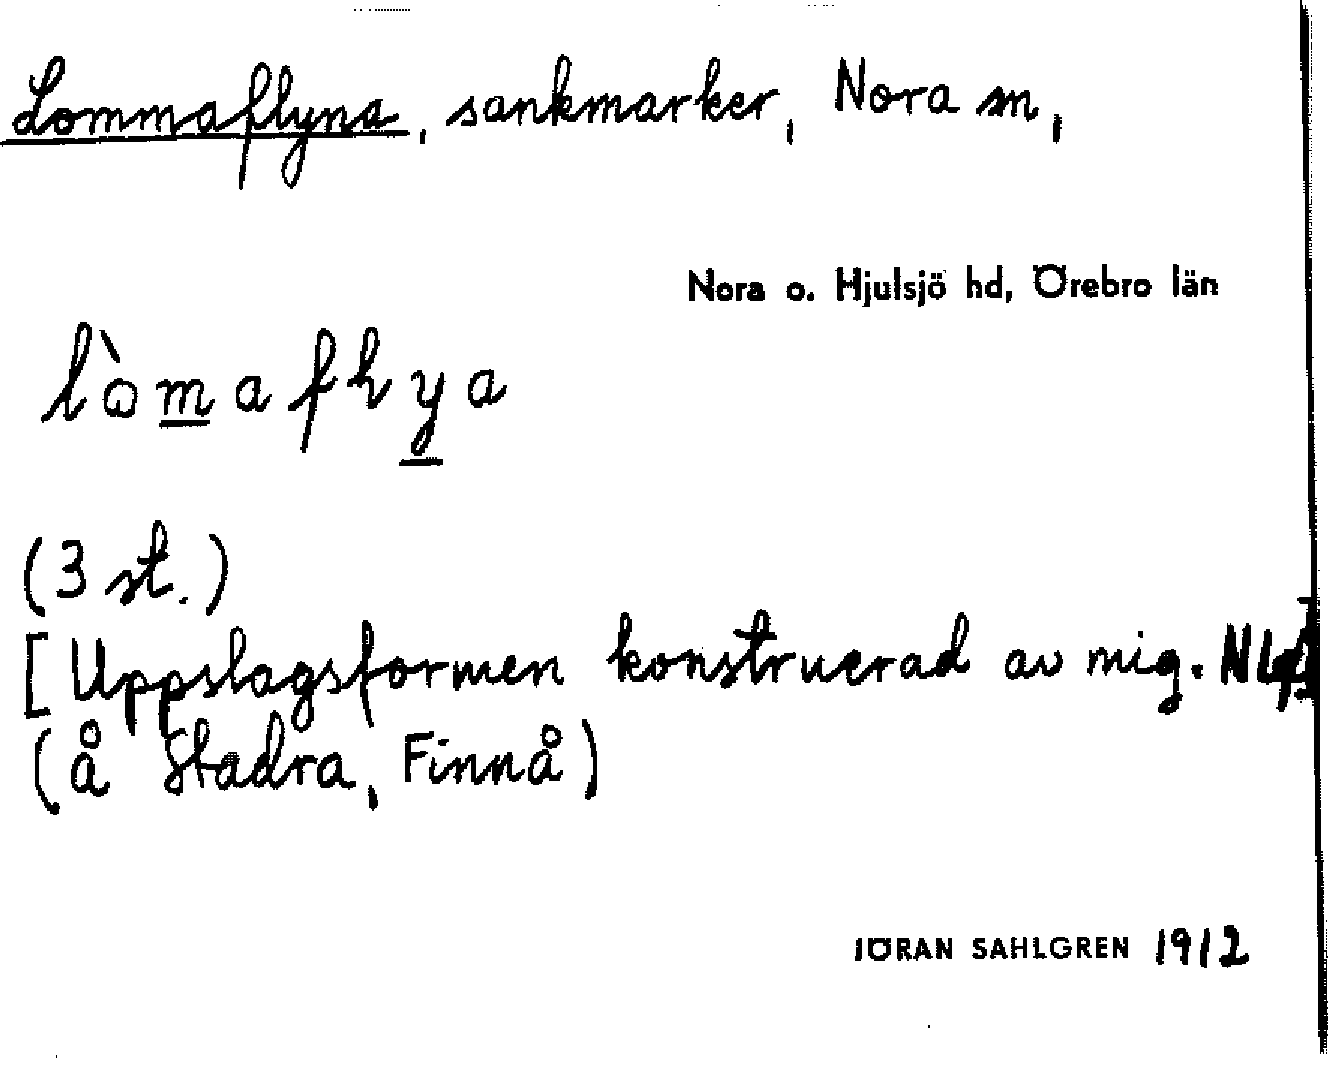 Lommaflyna, sankmarker, Nora m,
Nora o. Hjulsjö hd, Örebro län
lòmafhya
(3 st.)
[Uppslagsformen konstruerad av mig.
(å Stadra, Finnå)
JÖRAN SAHLGREN 1912